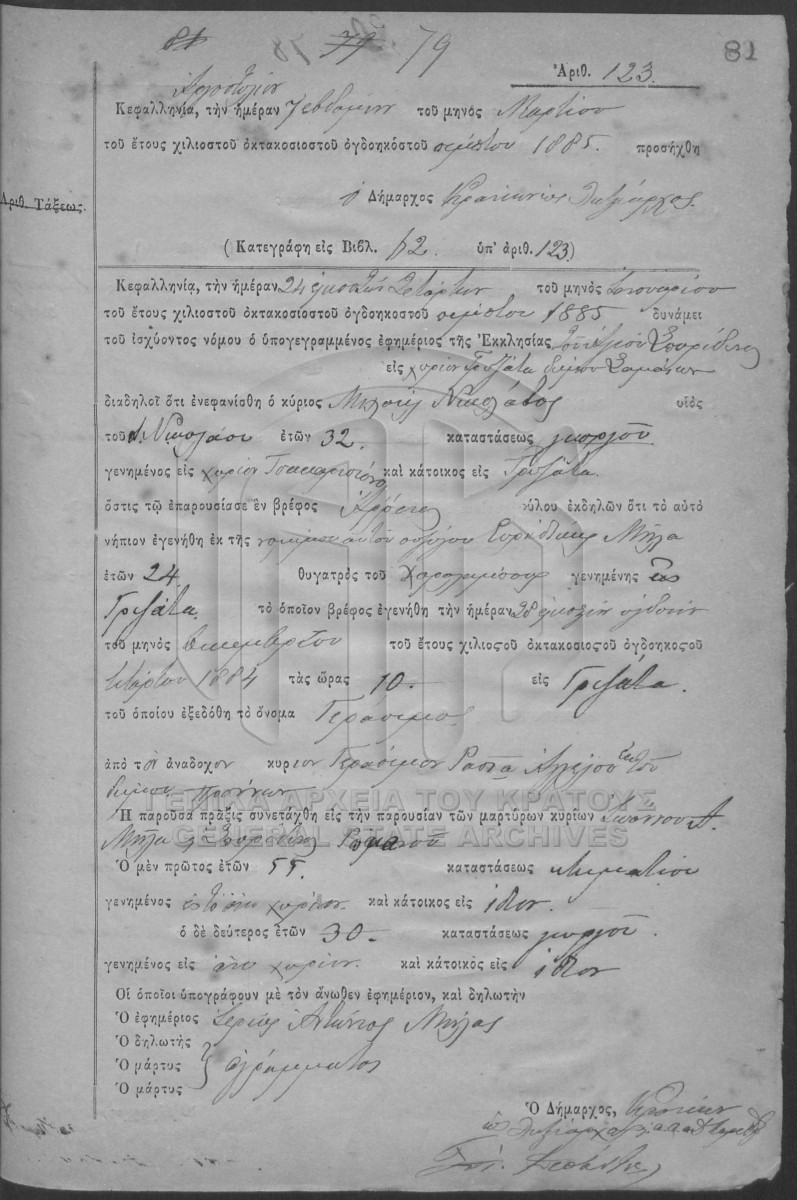 79
81
Ἀριθ. 123.
Ἀργοστόλιον
Κεφαλληνία, τὴν ἡμέραν ἑβδόμην τοῦ μηνὸς Μαρτίου
τοῦ ἔτους χιλιοστοῦ ὀκτακοσιοστοῦ ὀγδοηκόστοῦ πέμπτου 1885. προσήχθη
Ἀριθ. Τάξεως.
ὁ Δήμαρχος Κρανίων
(Κατεγράφη εἰς Βιβλ. 62 ὑπ' ἀριθ. 123)
Κεφαλληνίᾳ, τὴν ἡμέραν 24 εἰκοστὴν τετάρτην τοῦ μηνὸς Ἰανουαρίου
τοῦ ἔτους χιλιοστοῦ ὀκτακοσιοστοῦ ὀγδοηκοστοῦ πέμπτου 1885 δυνάμει
τοῦ ἰσχύοντος νόμου ὁ ὑπογεγραμμένος ἐφημέριος τῆς Ἐκκλησίας τοῦ Ἁγίου Σπυρίδωνος
εἰς χωρίον Γριζάτα δήμου Σαμαίων
διαδηλοῖ ὅτι ἐνεφανίσθη ὁ κύριος Μιχαὴλ υἱὸς
τοῦ Νικολάου ἐτῶν 32. καταστάσεως γεωργοῦ
γενημένος εἰς χωρίον καὶ κάτοικος εἰς Γριζάτα.
ὅστις τῷ ἐπαρουσίασε ἓν βρέφος ἄρρενος φύλου ἐκδηλῶν ὅτι τὸ αὐτὸ
νήπιον ἐγενήθη ἐκ τῆς νομίμου αὐτοῦ συζύγου Εὐρυδίκης Μήλα
ἐτῶν 24. θυγατρὸς τοῦ Χαραλάμπους γενημένης εἰς
Γριζάτα. τὸ ὁποῖον βρέφος ἐγενήθη τὴν ἡμέραν 28 εἰκοστὴν ὀγδόην
τοῦ μηνὸς Δεκεμβρίου τοῦ ἔτους χιλιοςοῦ ὀκτακοσιοςοῦ ὀγδοηκοςοῦ
τετάρτου 1884 τὰς ὥρας 10. εἰς Γριζάτα.
τοῦ ὁποίου ἐξεδόθη τὸ ὄνομα Γεράσιμος
ἀπὸ τὸν ἀνάδοχον κύριον Γεράσιμον ἐκ τοῦ
δήμου Πρόννων
Ἡ παροῦσα πρᾶξις συνετάχθη εἰς τὴν παρουσίαν τῶν μαρτύρων κυρίων Ἰωάννου Α.
Μήλα
ΓΕΝΙΚΑ ΑΡΧΕΙΑ ΤΟΥ ΚΡΑΤΟΥΣ
GENERAL STATE ARCHIVES
Ὁ μὲν πρῶτος ἐτῶν 55 καταστάσεως κτηματίου
γενημένος χωρίον καὶ κάτοικος εἰς ἴδιον.
ὁ δὲ δεύτερος ἐτῶν 30. καταστάσεως γεωργοῦ.
γενημένος εἰς ἄνω χωρίον. καὶ κάτοικὸς εἰς ἴδιον
Οἱ ὁποῖοι ὑπογράφουν μὲ τὸν ἄνωθεν ἐφημέριον, καὶ δηλωτὴν
Ὁ ἐφημέριος Ἱερεὺς Ἀντώνιος Μήλας
Ὁ δηλωτὴς
Ὁ μάρτυς ἀγράμματοι
Ὁ μάρτυς
Ὁ Δήμαρχος, Κρανίων